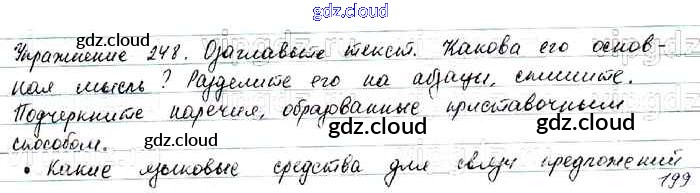 gdz.cloud
Упражнение 248. Озаглавьте текст. Какова его основ-
gdz.cloud gdz.cloud
ная мысль? Разделите его на абзацы, спишите.
Подчеркните наречия, образованные приставочным
gdz.cloud gdz.cloud
способом.
• Какие языковые средства для связи предложений
gdz.cloud gdz.cloud
199